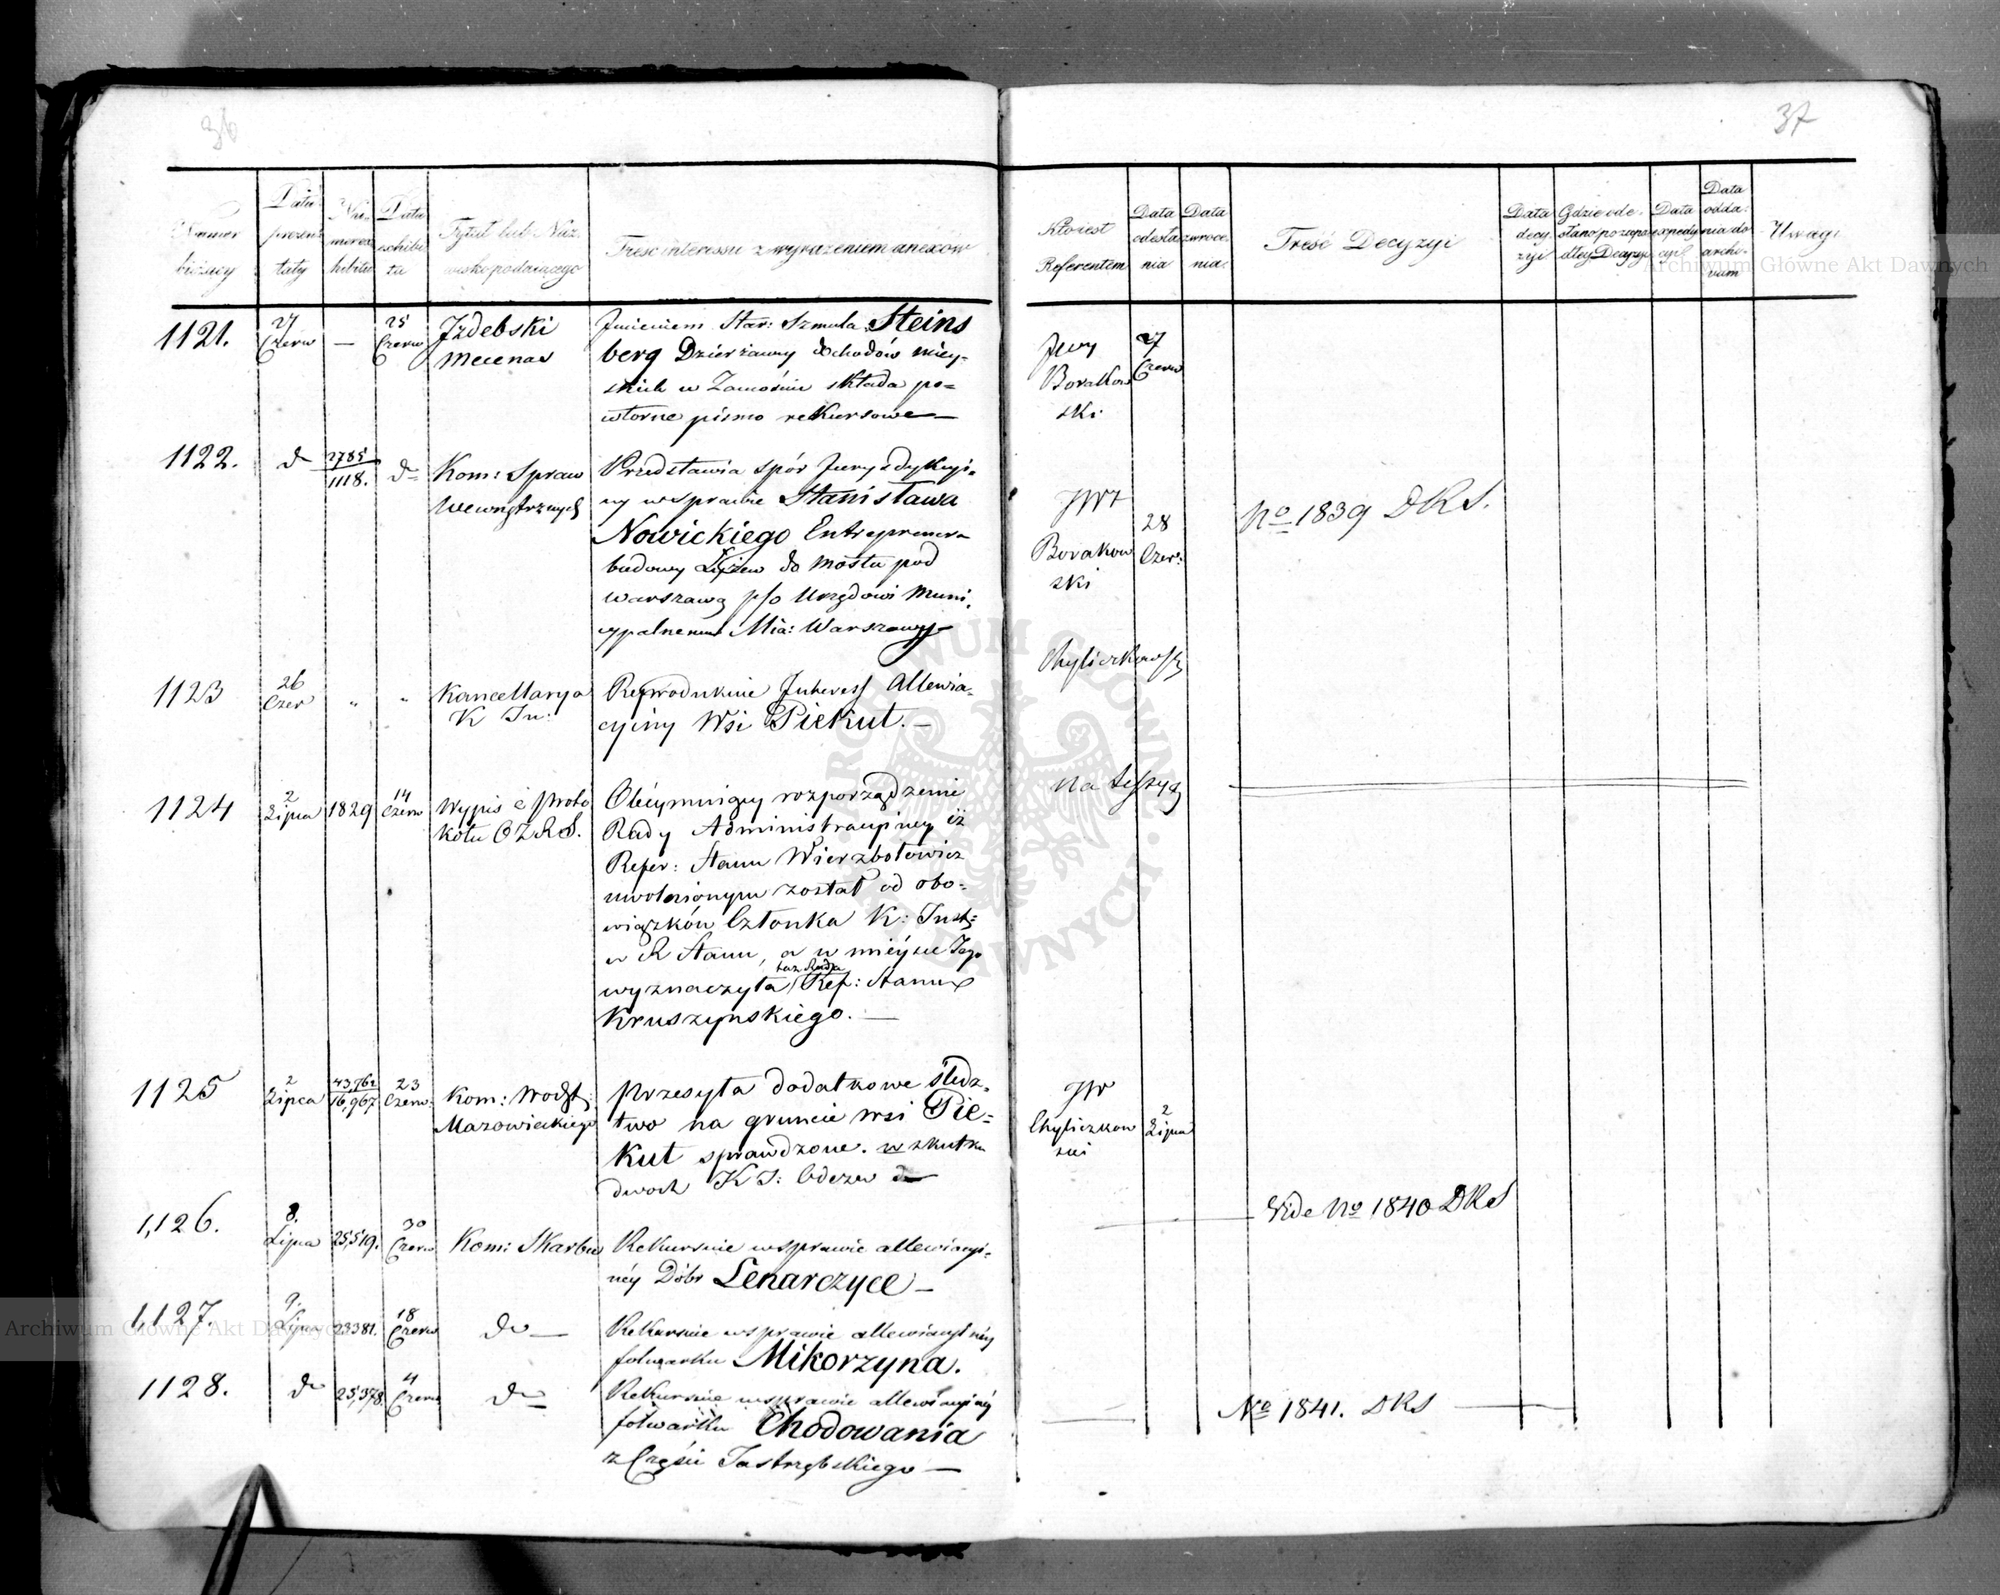 36
37
Numer bieżący
Data prezentaty
Numer exhibitu
Data exhibitu
Tytuł lub Nazwisko podaiącego
Treść interessu z wyrażeniem anexów
Kto iest Referentem
Data odesłania
Data zwrócenia
Treść Decyzyi
Data decyzyi
Gdzie odesłano po zapadłey Decyzyi
Data expedycyi
Data oddania do archivum
Uwagi
1121.
27 Czerw
—
25 Czerw
Izdebski
Mecenas
Imieniem Star: Szmula Steins
berg Dzierżawcy dochodów miey-
skich w Zamościu składa po=
wtorne pismo rekursowe—
Jwy
Borakow
ski
27 Czerw
1122.
do
2785
1118.
do
Kom: Spraw
Wewnętrznych
Przedstawia spór Jurysdykcyi=
ny w sprawie Stanisława
Nowickiego Entreprenera
budowy Łyżew do mostu pod
Warszawą p/o Urzędowi Muni
cypalnemu Mia: Warszawy
JW
Borakow
ski
28
Czer:
No 1839 DKS.
1123
26
Czer
"
"
Kancellarya
K In:
Reprodukuie Interess Allewia-
cyiny Wsi Piekut.—
Chyliczkowski
1124
2
Lipca
1829
14
Czerw
Wypis z Proto
kołu O Z R S.
Obéymuiący rozporządzenie
Rady Administracyiney iż
Refer: Stanu Wierzbołowicz
uwolnionym został od obo=
wiązków Członka K: Inst:
w R Stanu, a w mieysce Jego
wyznaczyła Ref: Stanu
Kruszynskiego.—
1125
2
Lipca
43,762
16,967
23
Czerw:
Kom: Wodzt:
Mazowieckiego
Przesyła dodatkowe śledz=
two na gruncie wsi Pie=
kut sprawdzone. w skutku
dwoch K I: Odezw do
JW
Chyliczkow
ski
2
Lipca
1,126.
8.
Lipca
25,519.
30
Czerw
Kom: Skarbu
Rekursuie w sprawie allewiacyi=
néy Dóbr Lenarczyce—
Vide No 1840 DKS
1,127.
9.
Lipca
23381.
18
Czerw
do—
Rekursuie w sprawie allewiacyinéy
folwarku Mikorzyna.
1128.
do
25,378.
4
Czerw
do
Rekursuie w sprawie allewiacyinéy
folwarku Chodowania
z Części Jastrzębskiego—
No 1841. DKS
Archiwum Główne Akt Dawnych
Archiwum Główne Akt Dawnych
ARCHIWUM GŁÓWNE AKT DAWNYCH